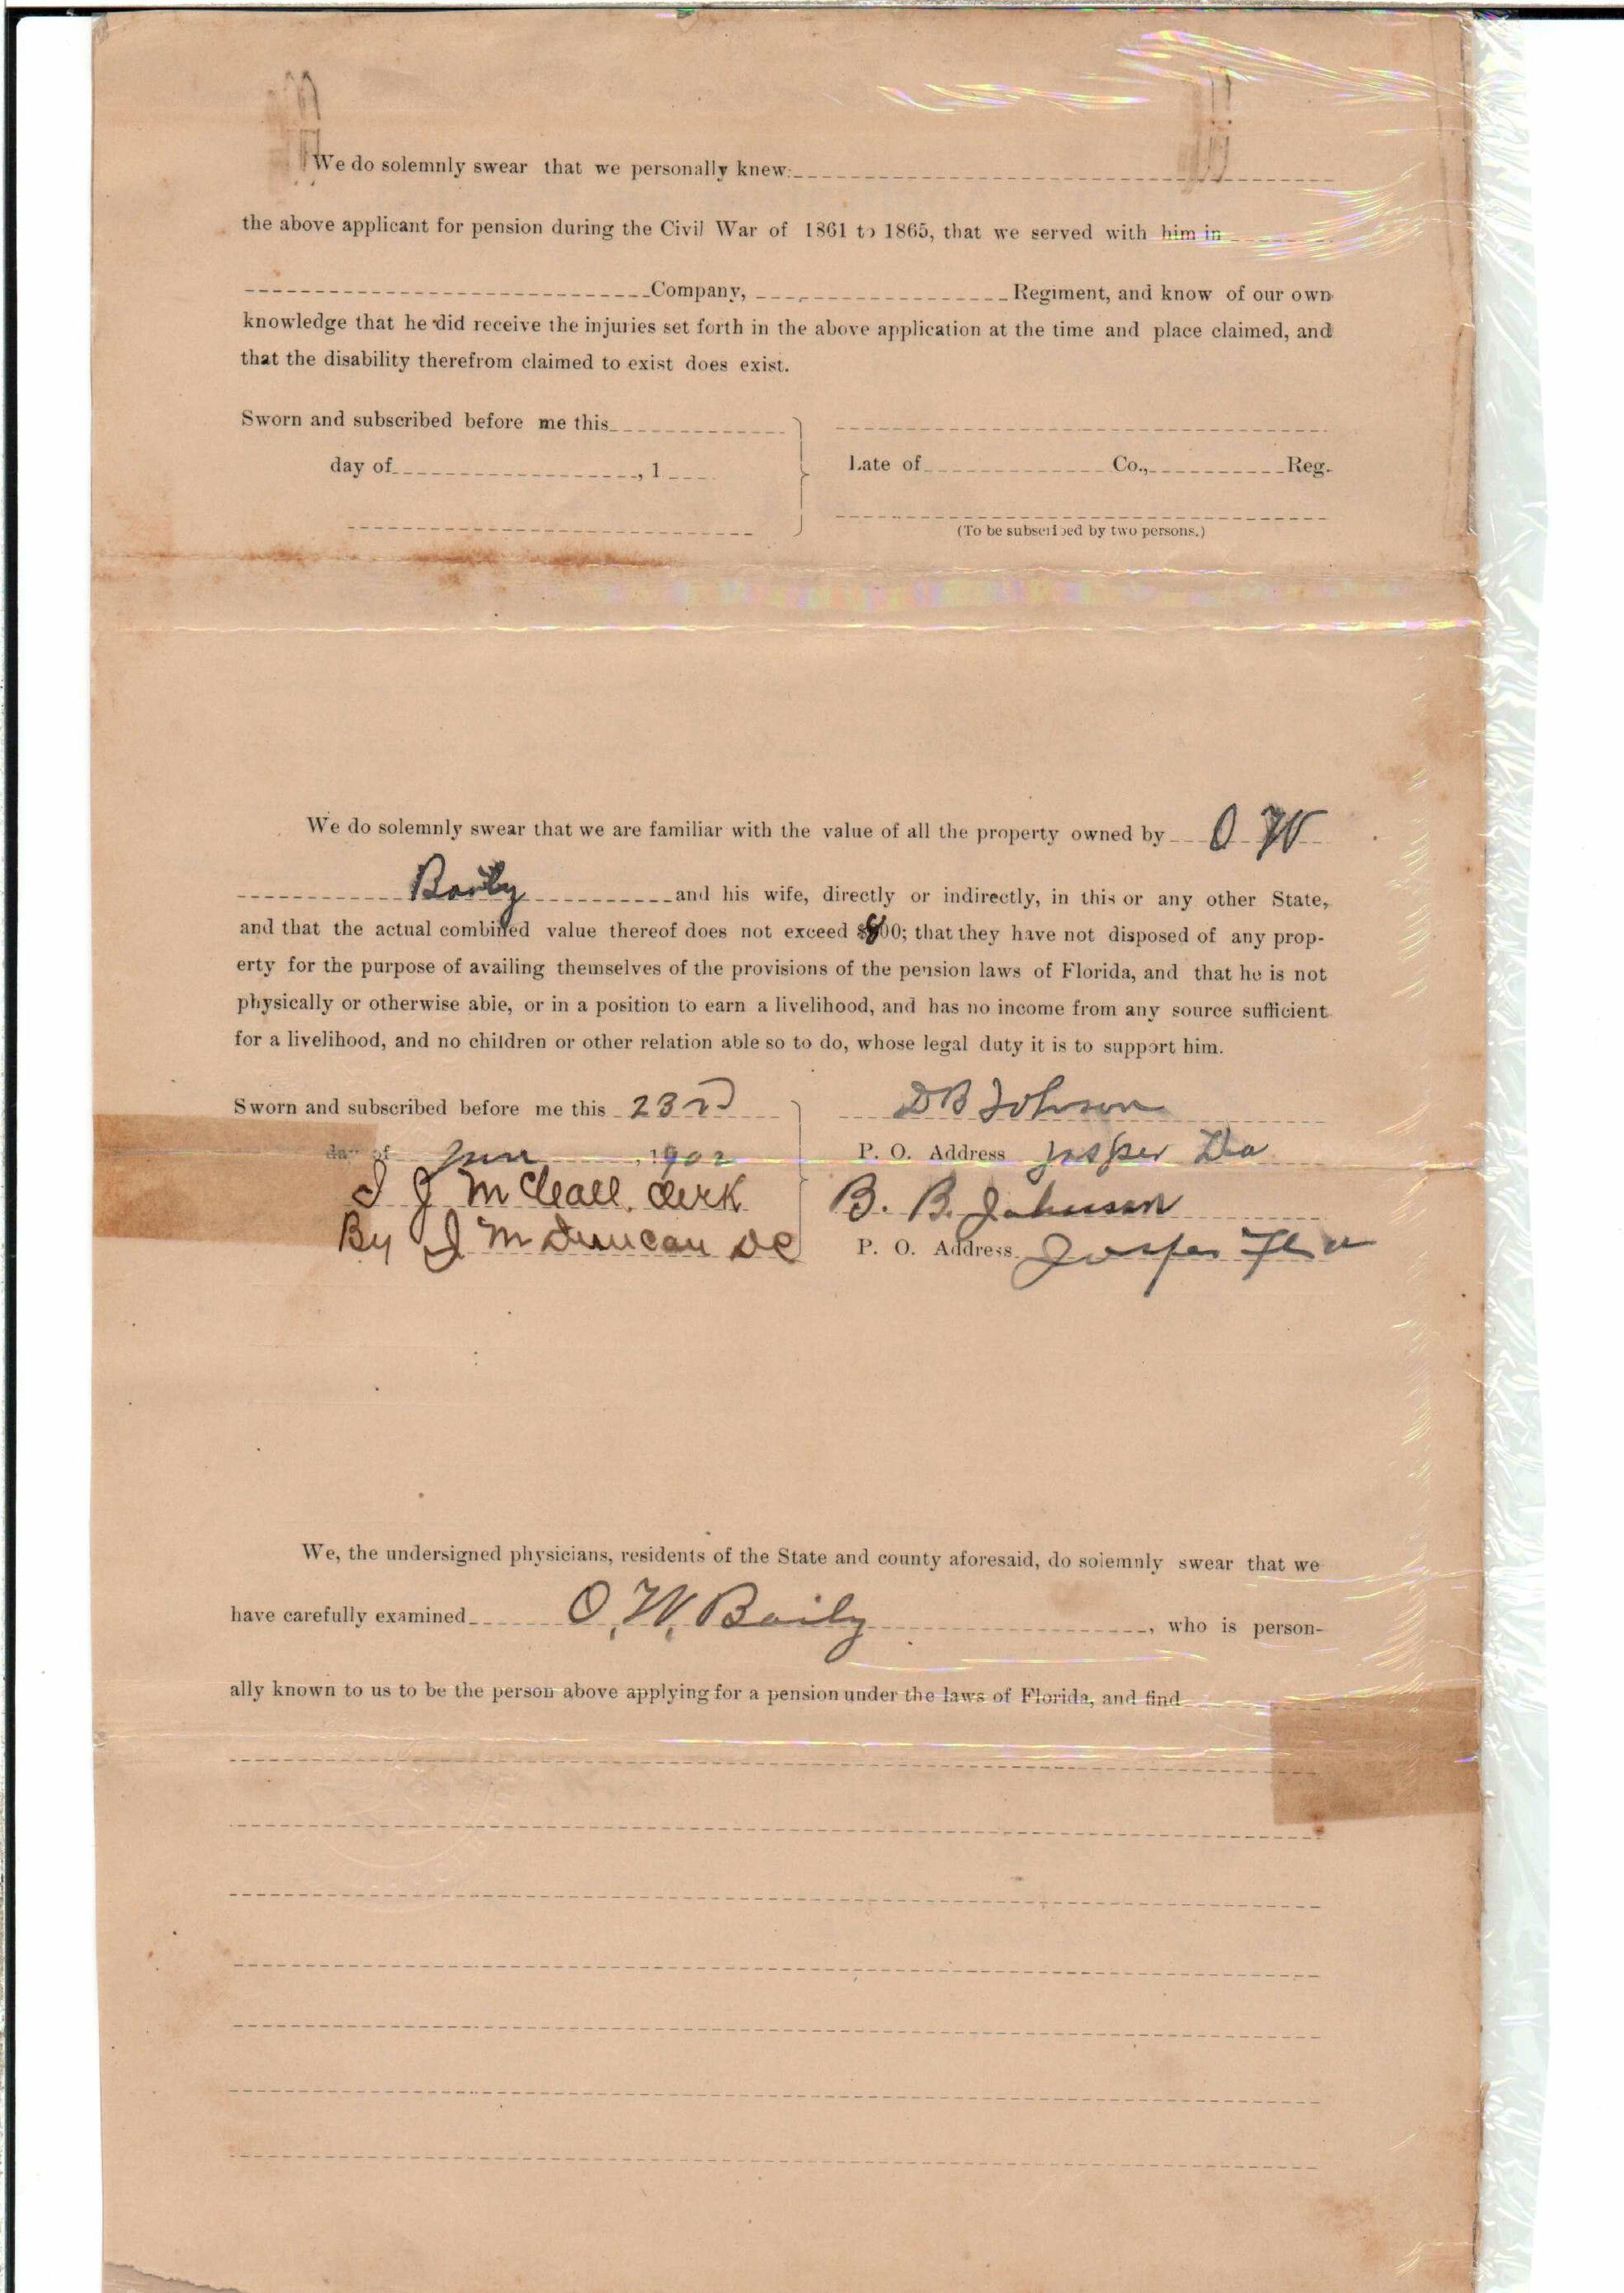 We do solemnly swear that we personally knew
the above applicant for pension during the Civil War of 1861 to 1865, that we served with him in
Company, Regiment, and know of our own
knowledge that he did receive the injuries set forth in the above application at the time and place claimed, and
that the disability therefrom claimed to exist does exist.
Sworn and subscribed before me this
day of , 1
Late of Co., Reg.
(To be subscribed by two persons.)
We do solemnly swear that we are familiar with the value of all the property owned by O W
Baily and his wife, directly or indirectly, in this or any other State,
and that the actual combined value thereof does not exceed 00; that they have not disposed of any prop-
erty for the purpose of availing themselves of the provisions of the pension laws of Florida, and that he is not
physically or otherwise able, or in a position to earn a livelihood, and has no income from any source sufficient
for a livelihood, and no children or other relation able so to do, whose legal duty it is to support him.
Sworn and subscribed before me this 23rd
day of , 1902
J McCall, Clerk
By J M Duncan DC
D B Johnson
P. O. Address Jasper Fla
B. B. Johnson
P. O. Address Jasper Fla
We, the undersigned physicians, residents of the State and county aforesaid, do solemnly swear that we
have carefully examined O. W. Baily , who is person-
ally known to us to be the person above applying for a pension under the laws of Florida, and find